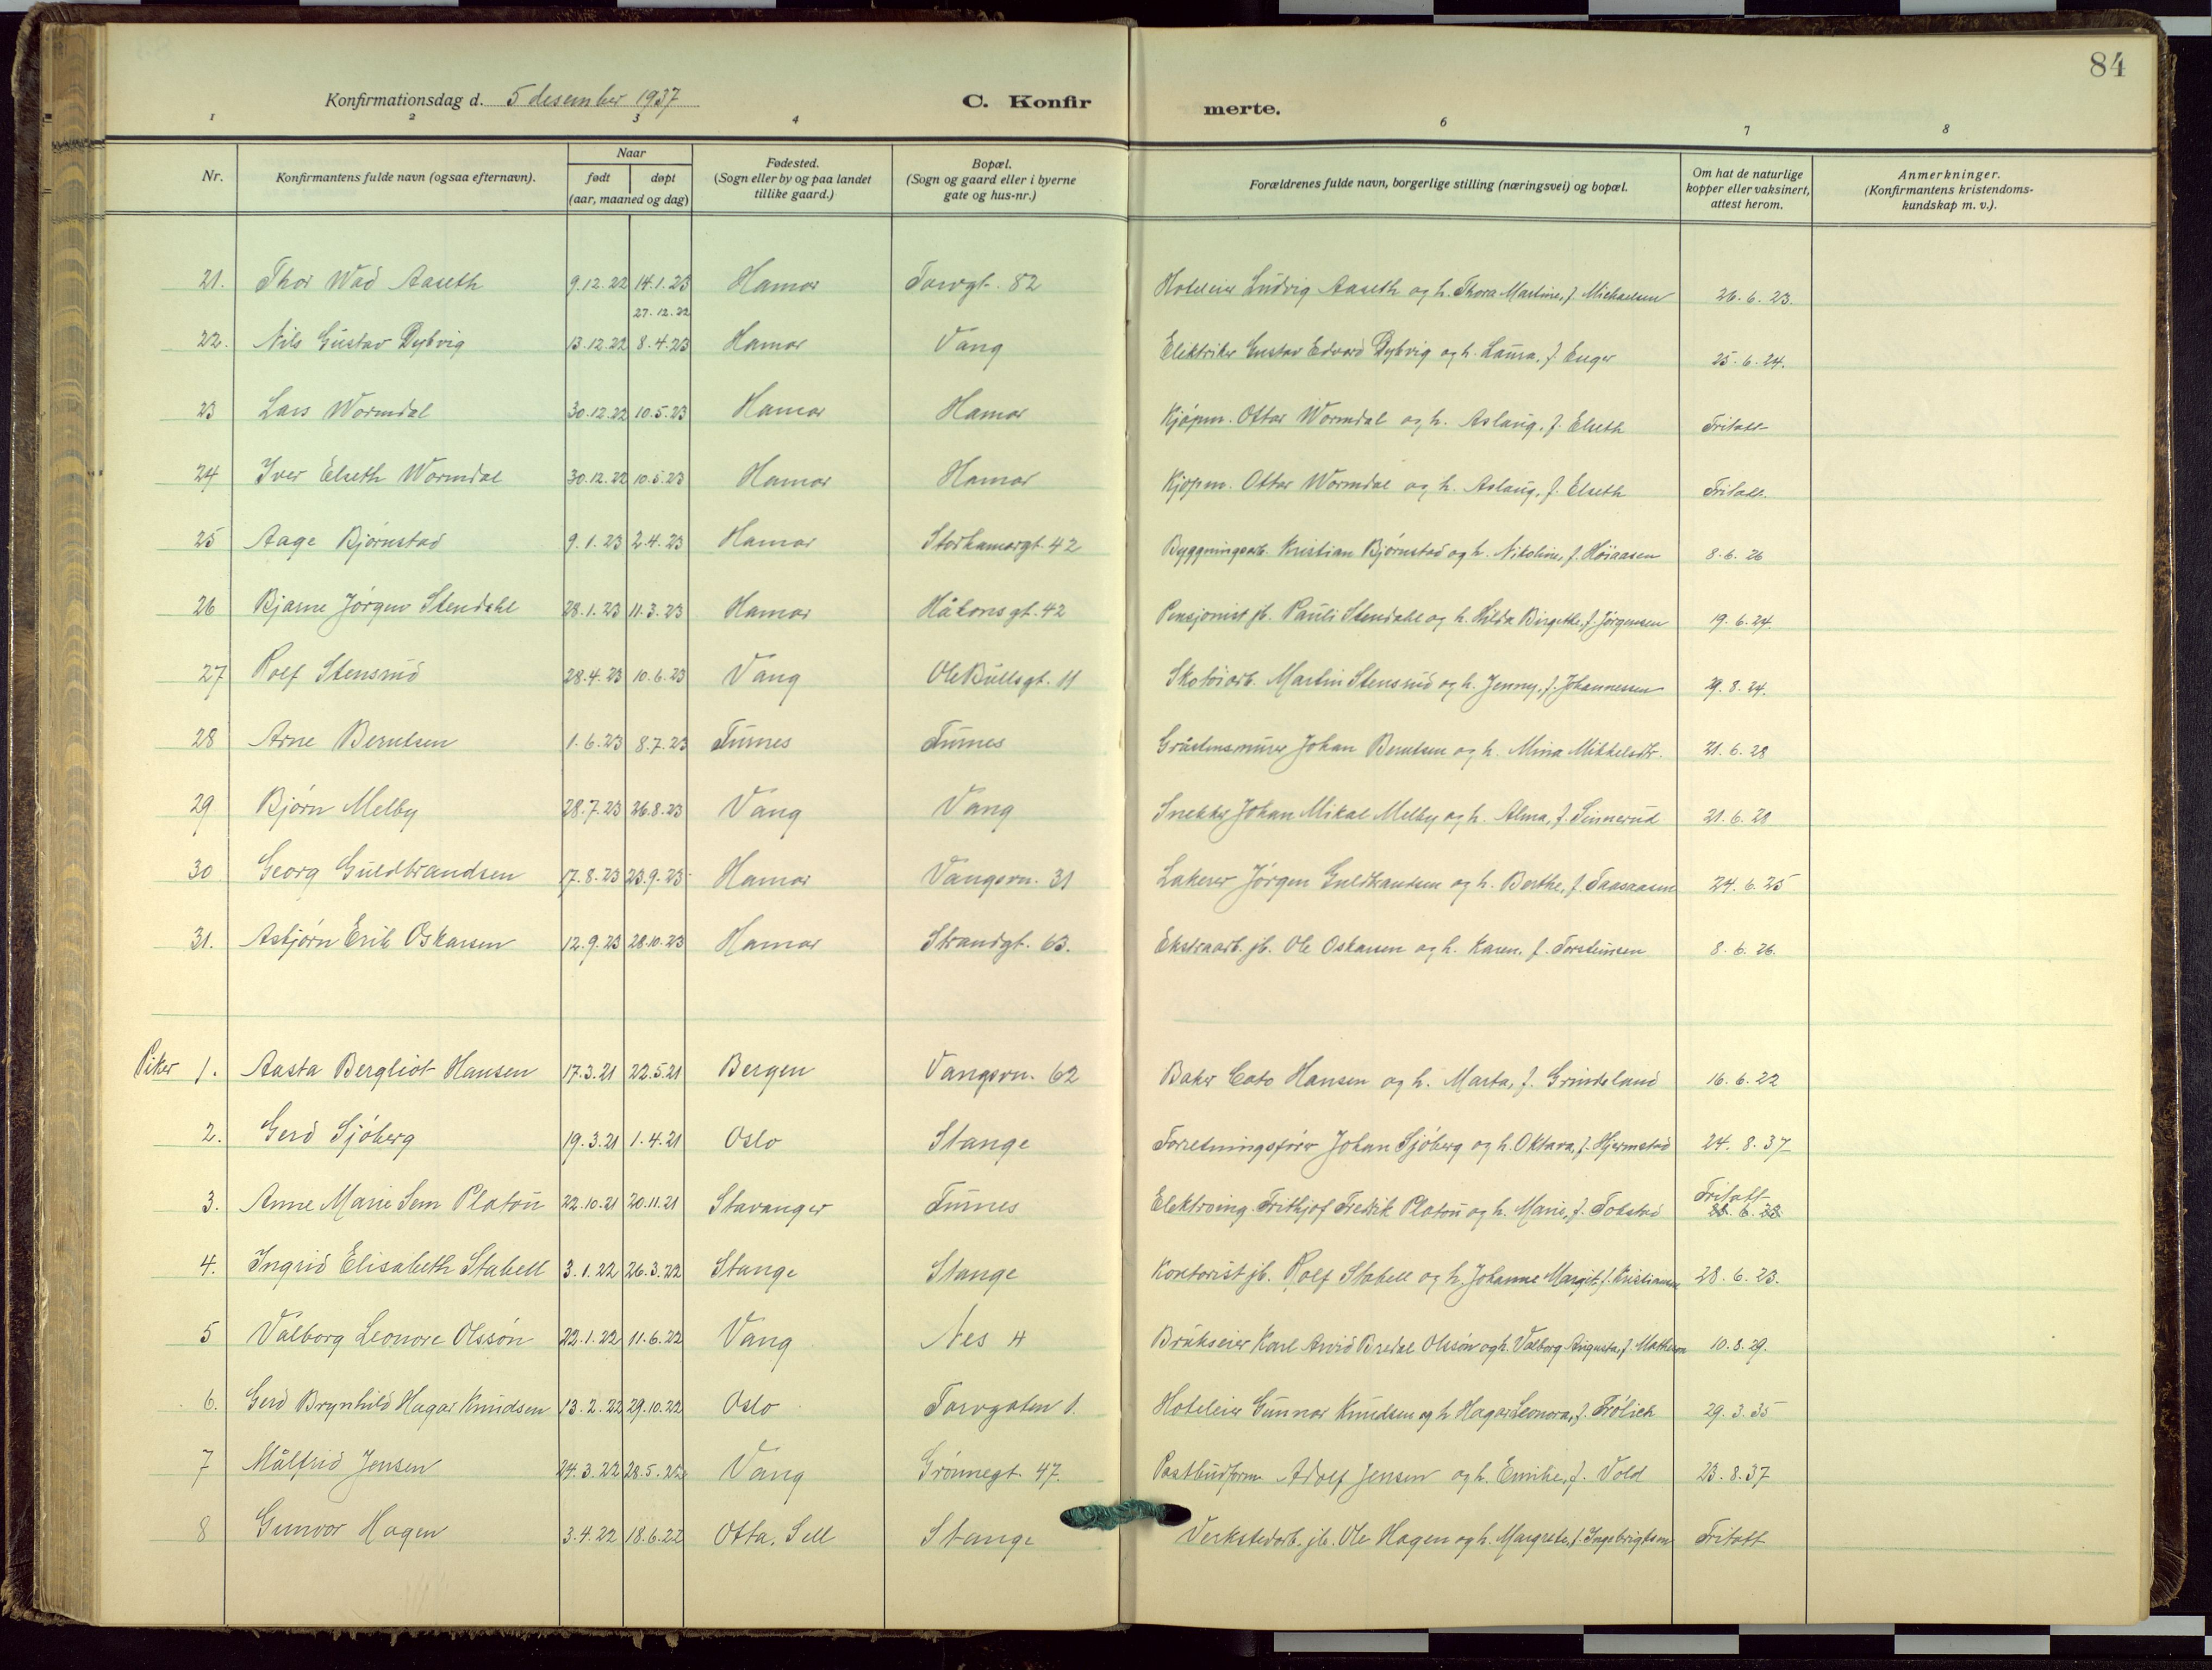 84
Konfirmationsdag d. 5 desember 1937
C. Konfir merte.
1 2 3 4 6 7 8
Nr.
Konfirmantens fulde navn (ogsaa efternavn).
Naar
født døpt
(aar, maaned og dag)
Fødested.
(Sogn eller by og paa landet
tillike gaard.)
Bopæl.
(Sogn og gaard eller i byerne
gate og hus-nr.)
Forældrenes fulde navn, borgerlige stilling (næringsvei) og bopæl.
Om hat de naturlige
kopper eller vaksinert,
attest herom.
Anmerkninger.
(Konfirmantens kristendoms-
kundskap m. v.).
21. Thor Wad Aaseth 9.12.22 14.1.23 Hamar Torvgt. 82 Hoteleier Ludvig Aaseth og h. Thora Martine, f. Michaelsen 26.6.23.
27.12.22
22. Nils Gustav Dybvig 13.12.22 8.4.23 Hamar Vang Elektriker Gustav Edvard Dybvig og h. Laura, f. Enger 25.6.24.
23 Lars Wormdal 30.12.22 10.5.23 Hamar Hamar Kjøpm. Ottar Wormdal og h. Aslaug, f. Elseth Fritatt
24 Iver Elseth Wormdal 30.12.22 10.5.23 Hamar Hamar Kjøpm. Ottar Wormdal og h. Aslaug, f. Elseth Fritatt.
25 Aage Bjørnstad 9.1.23 2.4.23 Hamar Storhamargt. 42 Byggningsarb. Kristian Bjørnstad og h. Nikoline, f. Høiaasen 8.6.26
26 Bjarne Jørgen Stendahl 28.1.23 11.3.23 Hamar Håkonsgt. 42 Pensjonist jb. Pauli Stendahl og h. Hilda Birgethe, f. Jørgensen 19.6.24.
27 Rolf Stensrud 28.4.23 10.6.23 Vang Ole Bullsgt. 11 Skotøiarb. Martin Stensrud og h. Jenny, f. Johannessen 29.8.24.
28 Arne Berntsen 1.6.23 8.7.23 Furnes Furnes Gråstensmurer Johan Berntsen og h. Mina Mikkelsdtr. 21.6.28
29 Bjørn Melby 28.7.23 26.8.23 Vang Vang Snekker Johan Mikal Melby og h. Alma, f. Sinnerud 21.6.28
30 Georg Guldbrandsen 17.8.23 23.9.23 Hamar Vangsvn. 31 Lakerer Jørgen Guldbrandsen og h. Borthe, f. Taasaasen 24.6.25
31. Asbjørn Erik Oskarsen 12.9.23 28.10.23 Hamar Strandgt. 63. Ekstraarb. jb. Ole Oskarsen og h. Karen, f. Torsteinsen 8.6.26.
Piker 1. Aasta Bergliot Hansen 17.3.21 22.5.21 Bergen Vangsvn. 62 Baker Cato Hansen og h. Marta, f. Grindeland 16.6.22
2. Gerd Sjøberg 19.3.21 1.4.21 Oslo Stange Forretningsfører Johan Sjøberg og h. Oktava, f. Hjermstad 24.8.37
3. Anne Marie Sem Platou 22.10.21 20.11.21 Stavanger Furnes Elektroing. Frithjof Fredrik Platou og h. Marie, f. Tokstad Fritatt
4. Ingrid Elisabeth Stabell 3.1.22 26.3.22 Stange Stange Kontorist jb. Rolf Stabell og h. Johanne Margit, f. Kristiansen 28.6.23.
5 Valborg Leonore Olssøn 22.1.22 11.6.22 Vang Nes H Brukseier Karl Arvid Bredal Olssøn og h. Valborg Augusta, f. Mathesen 10.8.29.
6. Gerd Brynhild Hagar Knudsen 13.2.22 29.10.22 Oslo Torvgaten 1. Hoteleier Gunnar Knudsen og h Hagar Leonora, f. Frølich 29.3.35
7 Målfrid Jensen 24.3.22 28.5.22 Vang Grønnegt. 47. Postbudform. Adolf Jensen og h. Emilie, f. Vold 23.8.37
8 Gunvor Hagen 3.4.22 18.6.22 Otta, Sell Stange Verkstedarb. jb. Ole Hagen og h. Margrete, f. Ingebrigtsen Fritatt